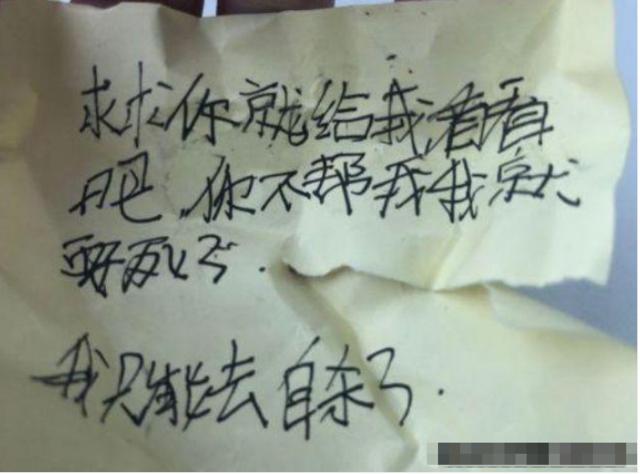 求求你就给我看看
吧,你不帮我我就
要死了.
我只能去自杀了.